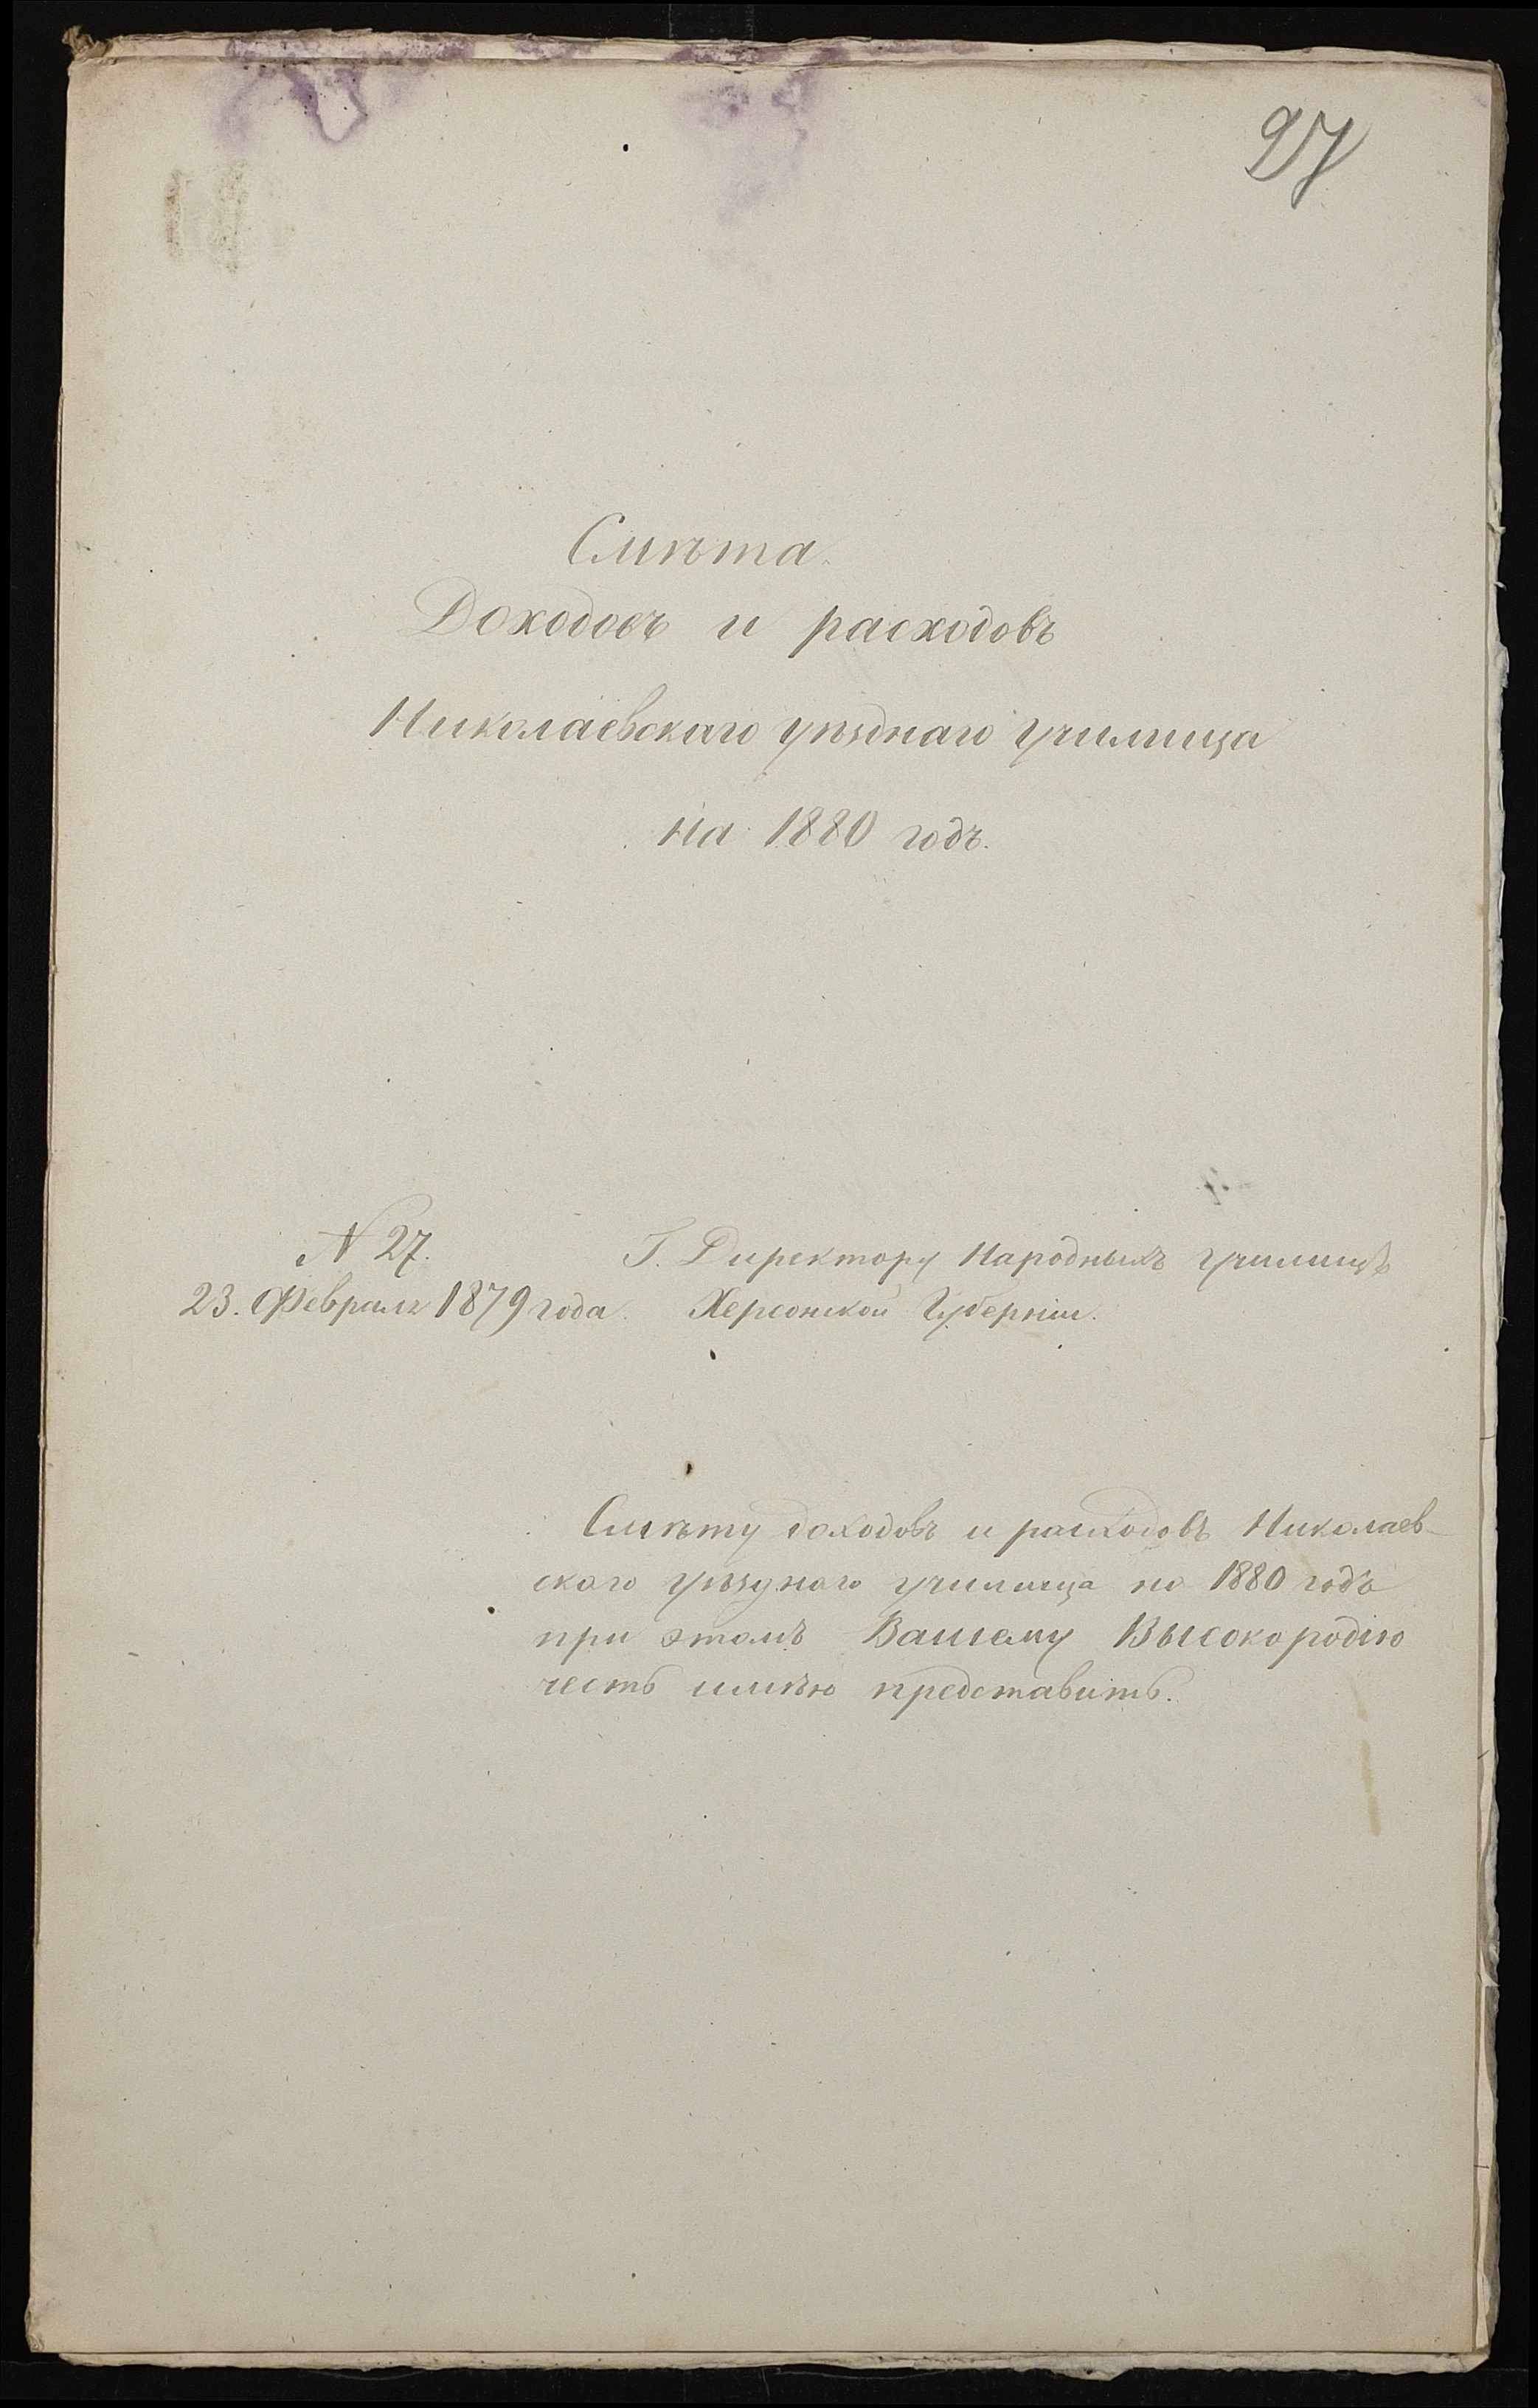 27
Смѣта
Доходовъ и расходовъ
Николаевскаго уѣзднаго училища
на 1880 годъ.
N 27.
23. Февраля 1879 года.
Г. Директору Народныхъ училищъ
Херсонской Губерніи.
Смѣту доходовъ и расходовъ Николаев-
скаго уѣзднаго училища на 1880 годъ
при этомъ Вашему Высокородію
честь имѣю представить.